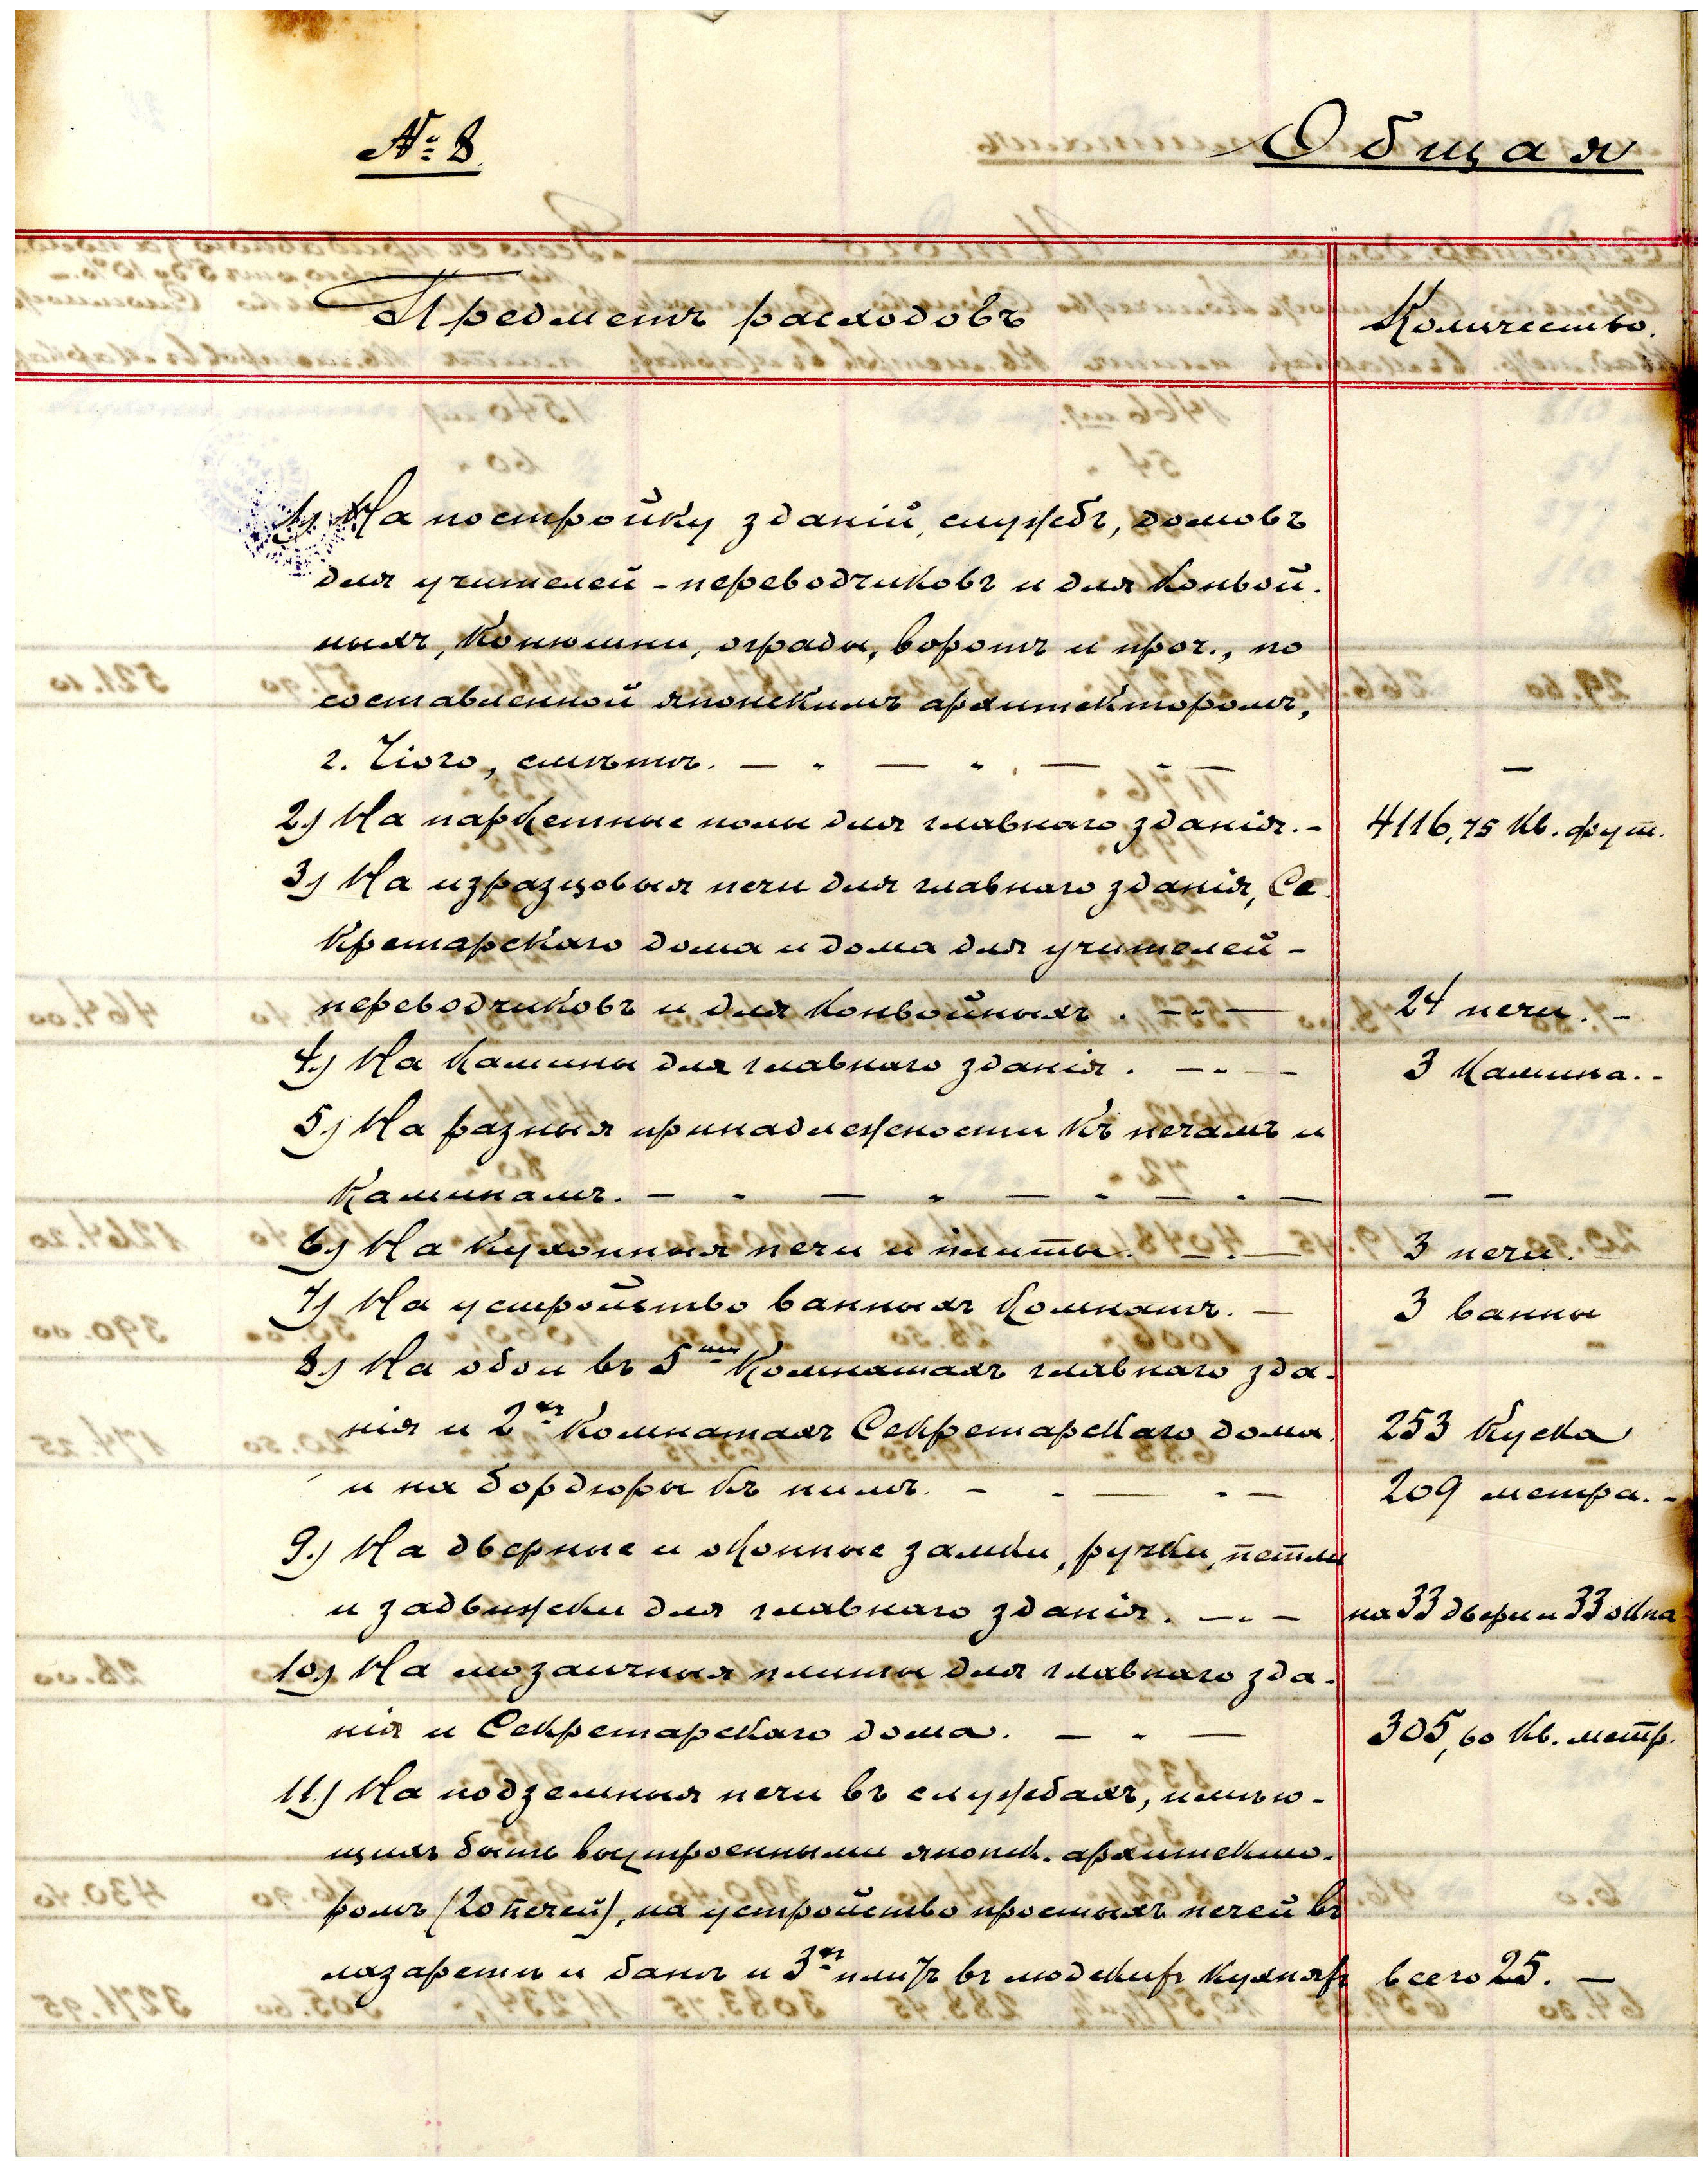 № 8.
Общая
Предметъ расходовъ
Количество.
1.) На постройку зданій, службъ, домовъ
для учителей-переводчиковъ и для конвой-
ныхъ, конюшни, ограды, воротъ и проч., по
составленной японскимъ архитекторомъ,
г. Тіого, смѣтѣ. — " — " — " — —
2.) На паркетные полы для главнаго зданія. - 4116,75 кв. фут.
3.) На изразцовыя печи для главнаго зданія, Се-
кретарскаго дома и дома для учителей-
переводчиковъ и для конвойныхъ. —"— 24 печи. -
4.) На камины для главнаго зданія. —"— 3 камина. -
5.) На разныя принадлежности къ печамъ и
каминамъ. — " — " — " — " — —
6.) На кухонныя печи и плиты. —"— 3 печи.
7.) На устройство ванныхъ комнатъ. — 3 ванны
8.) На обои въ 5ти комнатахъ главнаго зда-
нія и 2хъ комнатахъ Секретарскаго дома 253 куска
и на бордюры къ нимъ. - " — " — 209 метра. -
9.) На дверные и оконные замки, ручки, петли
и задвижки для главнаго зданія. —"— на 33 двери и 33 окна
10.) На мозаичныя плиты для главнаго зда-
нія и Секретарскаго дома. — " — 305,60 кв. метр.
11.) На подземныя печи въ службахъ, имѣю-
щихъ быть выстроенными японск. архитекто-
ромъ (20 печей), на устройство простыхъ печей въ
лазаретѣ и банѣ и 3хъ плитъ въ людскихъ кухняхъ всего 25. —